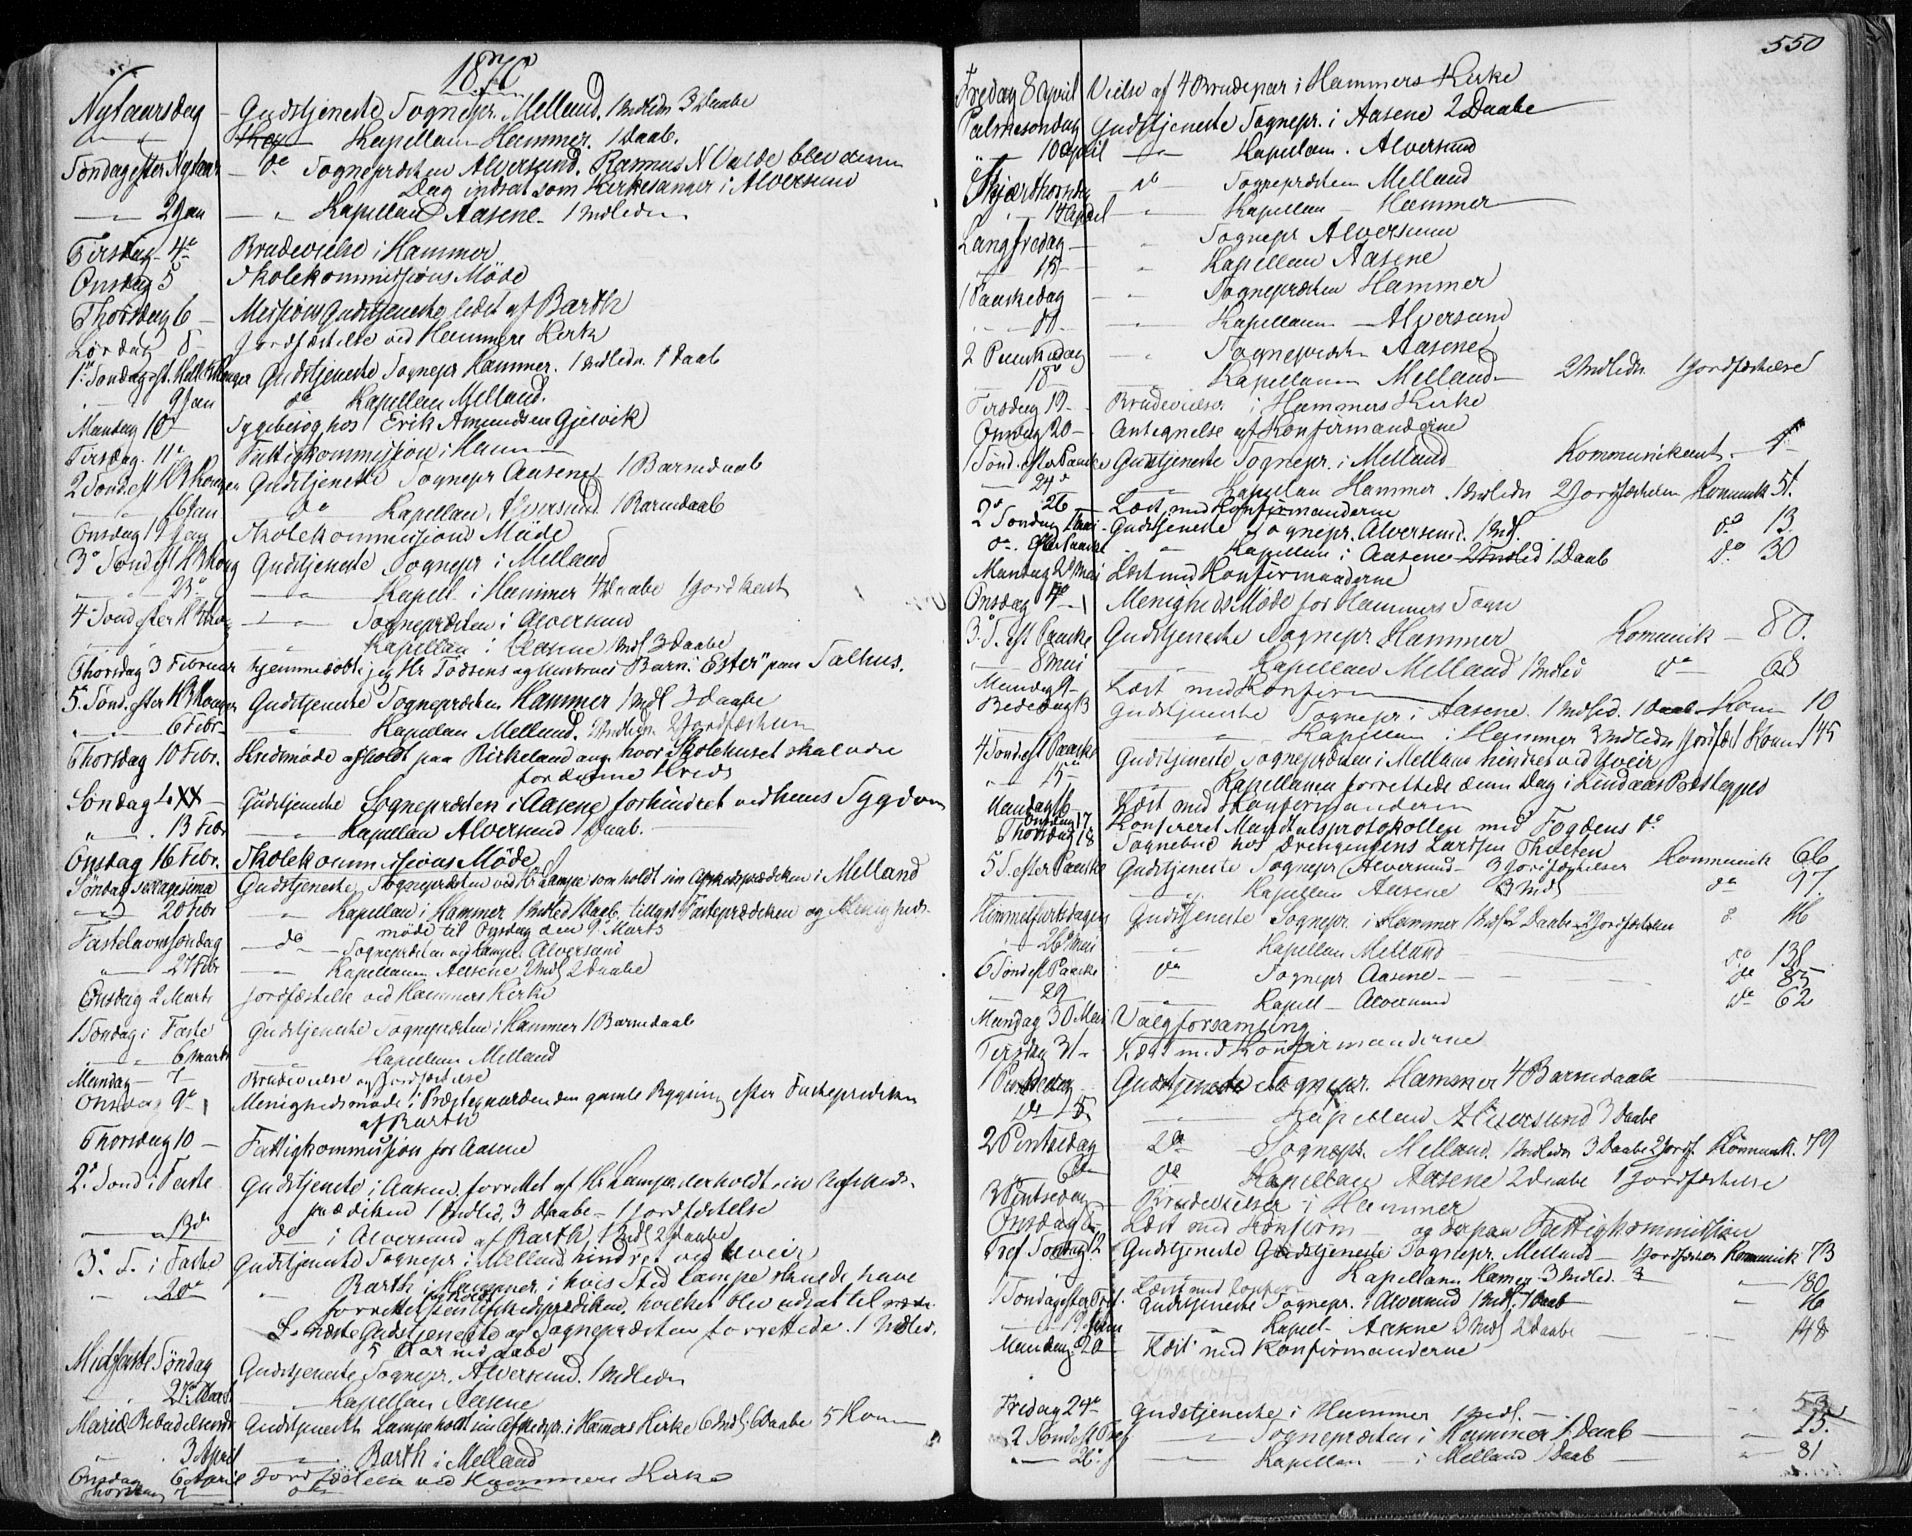 1870
Nytaarsdag Gudstjeneste Sognepr. Melland. 1 Indledn 3 Daabe
Kapellan Hammer. 1 Daab.
Søndag efter Nytaar do Sognepræsten Alversund. Rasmus N Valde blev denne
Dag indsat som Kirkesanger i Alversund
2 Jan Kapellan Aasene. 1 Indledn
Tirsdag 4de Brudevielse i Hammer
Onsdag 5 Skolekommissions Møde
Thorsdag 6 Missions Gudstjeneste ledet af Barth
Lørdag 8 Jordfæstelse ved Hammers Kirke
1ste Søndag eft. Hell. 3 Konger Gudstjeneste Sognepr Hammer. 1 Indledn 1 Daab
9 Jan do Kapellan Melland.
Mandag 10 Sygebesøg hos Erik Amundsen Gjervik
Tirsdag 11te Fattigkommission i Ham
2 Sønd. eft H 3 Konger Gudstjeneste Sognepr Aasene 1 Barnedaab
16 Jan do Kapellan Alversund 1 Barnedaab
Onsdag 19 Jan Skolekommissions Møde
3die Sønd eft H 3 Kong Gudstjeneste Sognepr i Melland
23de Kapell. i Hammer 4 Daabe 1 Jordkast
4de Sønd efter H 3 Kong Sognepræsten i Alversund
Kapellan i Aasene 1 Indl 3 Daabe
Thorsdag 3 Februar hjemmedøbte jeg Hr Todsens og Hustrues Barn "Ester" paa Salhus.
5. Sønd. efter H 3 Konger Gudstjeneste Sognepræsten Hammer 1 Indl 2 Daabe
6 Febr Kapellan Melland. 2 Indledn 2 Jordfæstelser
Thorsdag 10 Febr. Kredsmøde afholdt paa Birkeland ang. hvor Skolehuset skal være
for denne Kreds
Søndag LXX Gudstjeneste Sognepræsten i Aasene forhindret ved hans Sygdom
13 Febr Kapellan Alversund 1 Daab.
Onsdag 16 Febr. Skolekommissions Møde
Søndag Sexagesima Gudstjeneste Sognepræsten ved Hr Lampe som holdt sin Afskedsprædiken i Melland
20 Febr Kapellan i Hammer 1 Indled 1 Daab. tillyst Fasteprædiken og Menigheds-
møde til Onsdag den 9 Marts
Fastelavnssøndag do Sognepræsten ved Lampe Alversund
27 Febr Kapellanen Aasene 2 Indl 2 Daabe
Onsdag 2 Marts Jordfæstelse ved Hammers Kirke
1 Søndag i Faste Gudstjeneste Sognepræsten i Hammer 1 Barnedaab
6 Marts Kapellan Melland
Mandag 7 Brudevielse og Jordfæstelse
Onsdag 9de Menighedsmøde i Præstegaarden den gamle Bygning efter Fasteprediken
af Barth
Thorsdag 10 Fattigkommission for Aasene
2. Sønd i Faste Gudstjeneste i Aasene forrettet af Hr Lampe der holdt sin Afskeds-
prædiken 1 Indled, 3 Daabe 1 Jordfæstelse
13de do i Alversund af Barth, 1 Indl 2 Daabe
3. S. i Faste Gudstjeneste Sognepr i Melland hindret ved Uveir
20de Barth i Hammer, i hvis Sted Lampe skulde have
forrettet sin Afskedsprædiken, hvilket blev udsat til
næste Gudstjeneste og Sognepræsten forrettede. 1 Indled.
5 Barnedaabe
Midfaste Søndag Gudstjeneste Sognepr. Alversund. 1 Indledn
27 Marts Kapellan Aasene
Mariæ Bebudelsesdag Gudstjeneste Lampe holdt sin Afskedspr. i Hammers Kirke 6 Indl 6 Daabe 5 Kom
3 April Barth i Melland
Onsdag 6 April Jordfæstelse ved Hammers Kirke
Thorsdag 7
550
Fredag 8 April Vielse af 4 Brudepar i Hammers Kirke
Palmesøndag Gudstjeneste Sognepr. i Aasene 2 Daabe
10 April Kapelan. Alversund
Skjærthorsdag do Sognepræsten Melland
14 April Kapellan Hammer
Langfredag Sognepr Alversund
15 Kapellan Aasene
1 Paaskedag Sognepræsten Hammer
17 Kapellanen Alversund
2 Paaskedag Sognepræsten Aasene
18 Kapellanen Melland 2 Indledn 1 Jordfæstelse
Tirsdag 19 Brudevielser i Hammers Kirke
Onsdag 20 Antegnelse af Konfirmanderne
1 Sønd. efter Paaske Gudstjeneste Sognepr. i Melland Kommunikant. 4
24de Kapelan Hammer 1 Indledn 2 Jordfæstelser Komunik 51.
26 Læst med Konfirmanderne
2 Søndag Gudstjeneste Sognepr. Alversund. 1 Indl. do 13
efter Paaske Kapellan i Aasene 2 Indled 1 Daab do 30
Mandag 2 Mai Læst med Konfirmanderne
Onsdag 4 Menigheds Møde for Hammers Sogn
3. S. eft Paaske Gudstjeneste Sognepr Hammer Komunik 80.
8 Mai Kapellan Melland 1 Indled do 68
Mandag 9 Læst med Konfirm
Bededag 13 Gudstjeneste Sognepr i Aasene. 1 Indled. 1 Daab Kom 10
Kapellan i Hammer 3 Indledn 1 Jordfæst Komun 145
4 Sønd eft Paaske Gudstjeneste Sognepræsten i Melland hindret ved Uveir
15 Kapellanen forrettede denne Dag i Lindaas Præstegjeld
Mandag 16 Læst med Konfirmanderne
Onsdag 17 Konfereret Mandtalsprotokollen med Fogdens do
Thorsdag 18 Sognebud hos Larssen
5 S. efter Paaske Gudstjeneste Sognepr Alversund 3 Jordfæstelser Kommunik 66
Kapellan Aasene 3 Indl do 97.
Himmelfartsdagen Gudstjeneste Sognepr. i Hammer 1 Indl 2 Daabe 2 Jordfæstelser do 116
26 Mai Kapellan Melland do 138
6 Sønd eft Paaske do Sognepr Aasene do 85
29 Kapell Alversund do 62
Mandag 30 Mai Valgforsamling
Tirsdag 31 Læst med Konfirmanderne
1 Pintsedag Gudstjeneste Sognepr. Hammer 4 Barnedaabe
5 Kapelland Alversund 3 Daabe
2 Pintsedag do Sognepr. Melland. 1 Indledn 3 Daabe 2 Jordf. Kommunik. 79
6te do Kapellan Aasene 2 Daabe 1 Jordfæstelse
3 Pintsedag Brudevielser i Hammer
Onsdag 8 Læst med Konfirm og derpaa Fattigkommission
Tref Søndag 12 Gudstjeneste Gudstjeneste Sognepr. Melland 1 Jordfæstelse Komunik 73
Kapellanen Hamer 3 Indled. 180
Læst med
1 Søndag efter Tref. Gudstjeneste Sognepr. i Alversund 1 Indl. 1 Daab 16
19 Juni Kapel. Aasene 3 Indl 2 Daabe 148
Mandag 20 Læst med Konfirmanderne
Fredag 24de Gudstjeneste i Hammer 1 Indl. 53
2 Sønd eft Tref Sognepræsten i Hammer 1 Daab 15.
26de Kapellan i Melland 1 Daab 81